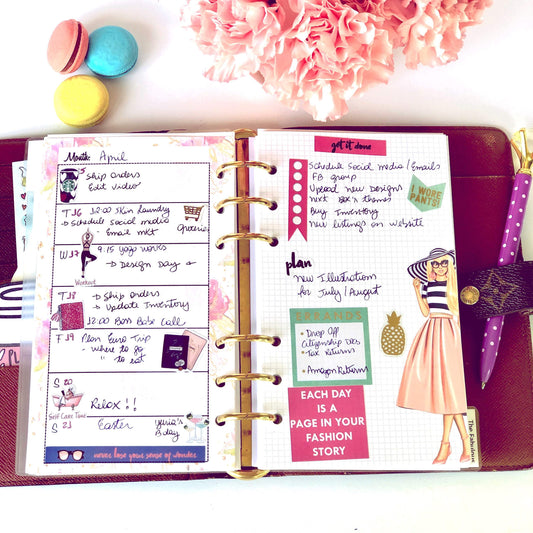 Month: April
Ship orders
Edit video
T 16 12:00 Skin Laundry
→ Schedule social media
- Email mkt
Groceries
W 17 9:15 yoga works
→ Design Day
Workout
T 18 → Ship orders
→ Update Inventory
12:00 Boss Babe Call
F 19 Plan Euro Trip
- where to go
" to eat
S 20
Relax!!
Self Care Time
S 21 Easter
B day
never lose your sense of wonder
get it done
Schedule Social media / Emails
FB group
Upload new designs
next Box's themes
Buy Inventory
New listings on website
I WORE
PANTS!
plan
New Illustrations
for July / August
ERRANDS
• Drop Off
Citizenship Docs
• Tax Returns
• Amazon Returns
EACH DAY
IS A
PAGE IN YOUR
FASHION
STORY
The Fabulous